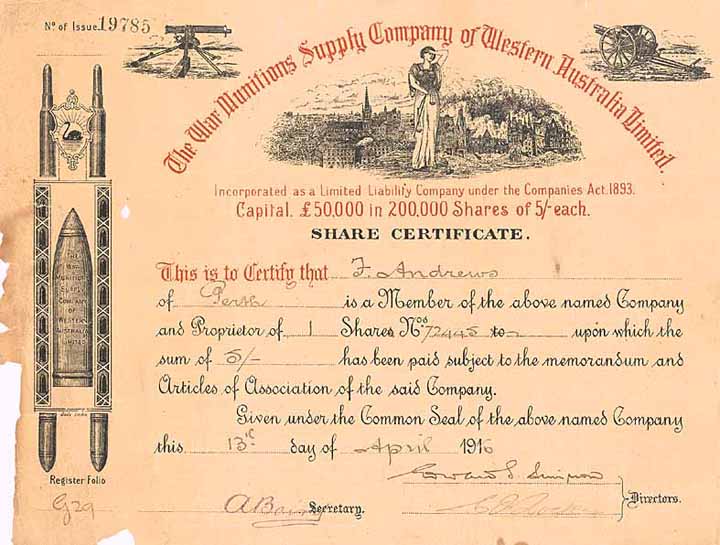 Nº of Issue 19785
The War Munitions Supply Company of Western Australia Limited.
Incorporated as a Limited Liability Company under the Companies Act. 1893.
Capital. £50,000 in 200,000 Shares of 5/- each.
SHARE CERTIFICATE.
This is to Certify that F. Andrews
of Perth is a Member of the above named Company
and Proprietor of 1 Shares Nos 72445 to - upon which the
sum of 5/- has been paid subject to the memorandum and
Articles of Association of the said Company.
Given under the Common Seal of the above named Company
this 13th day of April 1916
Edward S. Simpson
Secretary.
Directors.
THE
WAR
MUNITIONS
SUPPLY
COMPANY
OF
WESTERN
AUSTRALIA
LIMITED
Register Folio
G29